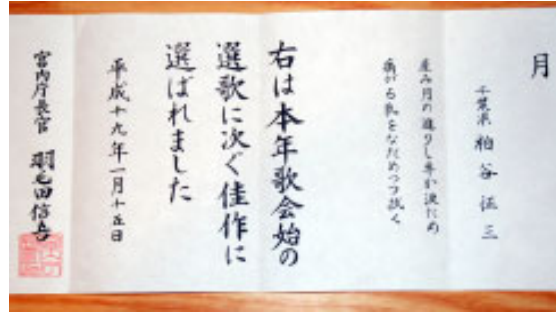 月
千葉県 柏谷 伍三
産み月の迫りし牛か涙ため
痛がる乳をなだめつつ拭く
右は本年歌会始の
選歌に次ぐ佳作に
選ばれました
平成十九年一月十五日
宮内庁長官 羽毛田信吾